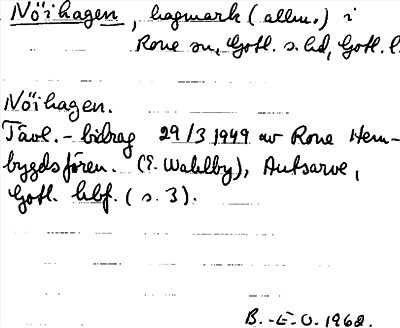 Nöihagen, hagmark (allm.) i
Rone sn, Gotl. s. hd, Gotl. l.
Nöihagen.
Tävl.-bidrag 29/3 1949 av Rone Hem-
bygdsfören. (E. Wahlby), Autsarve,
Gotl. hbf. (s. 3).
B.-E. O. 1962.